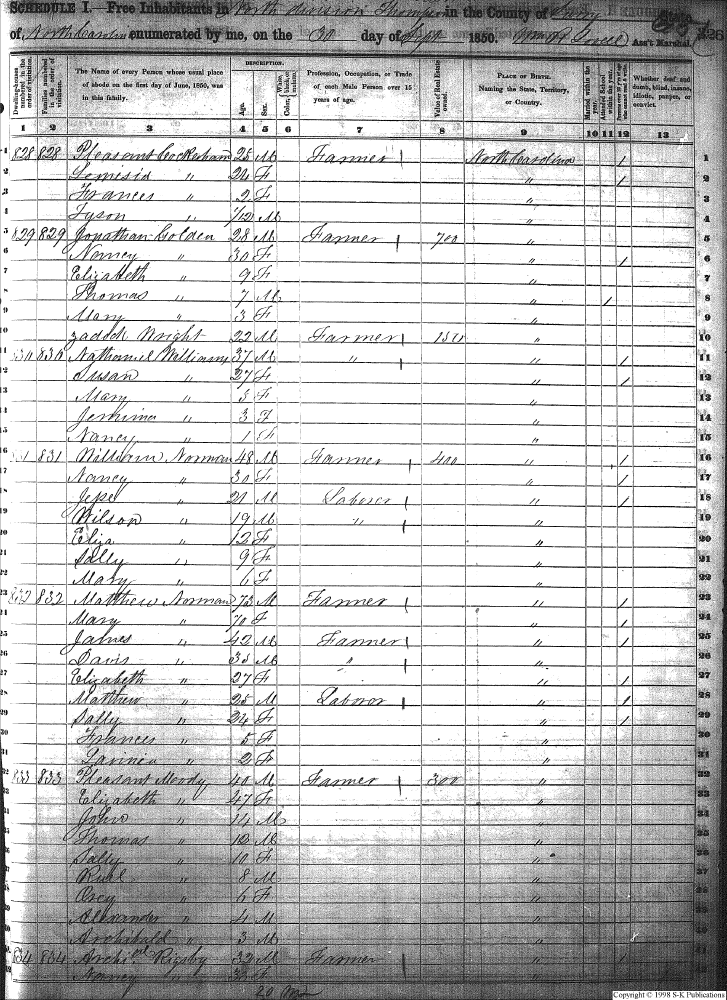 SCHEDULE I.—Free Inhabitants in North division Thompson in the County of Surry State
of North Carolina enumerated by me, on the 30 day of Sept 1850. Wm R Lovell Ass't Marshal 
Dwelling-houses numbered in the order of visitation.
Families numbered in the order of visitation.
The Name of every Person whose usual place of abode on the first day of June, 1850, was in this family.
DESCRIPTION.
Age.
Sex.
Color, White, black, or mulatto.
Profession, Occupation, or Trade of each Male Person over 15 years of age.
Value of Real Estate owned.
PLACE OF BIRTH. Naming the State, Territory, or Country.
Married within the year.
Attended School within the year.
Persons over 20 y'rs of age who cannot read & write.
Whether deaf and dumb, blind, insane, idiotic, pauper, or convict.
1 2 3 4 5 6 7 8 9 10 11 12 13
1 828 828 Pleasant Cockerham 25 M Farmer / North Carolina / 1
2 " 24 F " / 2
3 Frances " 2 F " 3
4 Tyson " 1/12 M " 4
5 829 829 Jonathan Golden 28 M Farmer / 700 " 5
6 Nancy " 30 F " / 6
7 Elizabeth " 9 F " 7
8 Thomas " 7 M " / 8
9 Mary " 3 F " 9
10 Zadock Wright 22 M Farmer / " 10
11 830 830 Nathaniel Williams 37 M " / " / 11
12 Susan " 27 F " / 12
13 Mary " 5 F " 13
14 Jemima " 3 F " 14
15 Nancy " 1 F " 15
16 831 831 William Norman 48 M Farmer / 400 " / 16
17 Nancy " 30 F " / 17
18 Jesse " 21 M Laborer / " / 18
19 Wilson " 19 M " / " 19
20 Eliza " 12 F " 20
21 Sally " 9 F " 21
22 Mary " 6 F " 22
23 832 832 Matthew Norman 73 M Farmer / " / 23
24 Mary " 70 F " / 24
25 James " 42 M Farmer / " / 25
26 Davis " 35 M " / " 26
27 Elizabeth " 27 F " / 27
28 Matthew " 25 M Laboror / " / 28
29 Sally " 24 F " / 29
30 Frances " 5 F " 30
31 " 2 F " 31
32 833 833 Pleasant Moody 40 M Farmer / 300 " 32
33 Elizabeth " 47 F " 33
34 John " 14 M " 34
35 Thomas " 12 M " 35
36 Sally " 10 F " 36
37 " 8 M " 37
38 " 6 F " 38
39 Alexander " 4 M " 39
40 Archibald " 3 M " 40
41 834 834 Rigsby 32 M Farmer / " / 41
42 Nancy " F " 42
Copyright © 1998 S-K Publications